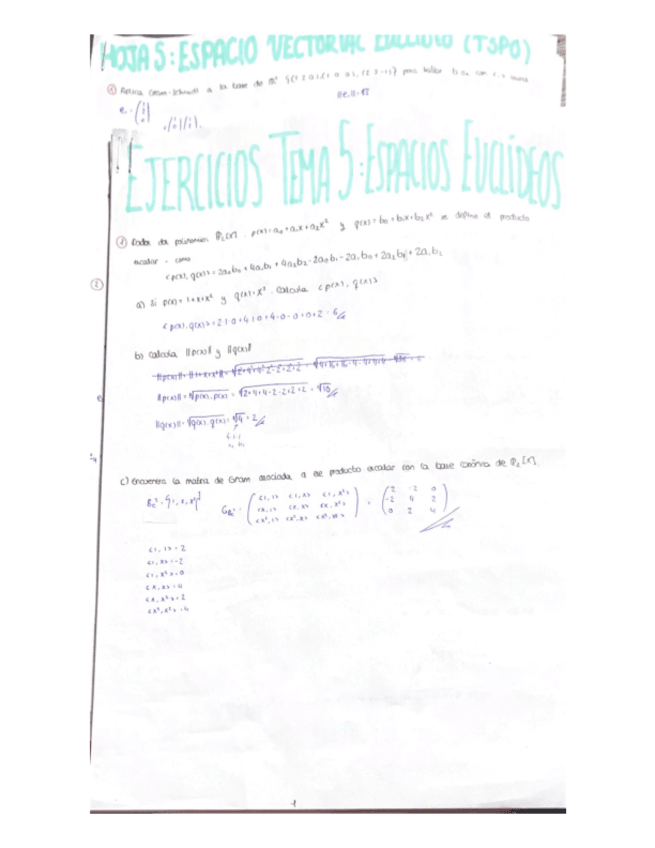 HOJA 5: ESPACIO VECTORIAL EUCLÍDEO (TSPO)
① Gram-Schmidt a la base de para hallar con
EJERCICIOS TEMA 5: ESPACIOS EUCLÍDEOS
① Dados dos polinomios P₂[x]. p(x)=a₀+a₁x+a₂x² y q(x)=b₀+b₁x+b₂x² se define el producto
escalar como
<p(x), q(x)> = 2a₀b₀ + 4a₁b₁ + 4a₂b₂ - 2a₀b₁ - 2a₁b₀ + 2a₂b₁ + 2a₁b₂
②
a) Si p(x) = 1+x+x² y q(x) = x². Calcula <p(x), q(x)>
<p(x), q(x)> = 2·1·0+4·1·0+4-0-0+0+2 = 6
b) Calcula ||p(x)|| y ||q(x)||
||p(x)|| = √p(x).p(x) = √2+4+4-2-2+2+2 = √10
||q(x)|| = √q(x).q(x) = √4 = 2
c) Encuentra la matriz de Gram asociada a ese producto escalar con la base canónica de P₂[x].
Bc = {1, x, x²} G_Bc = ( <1,1> <1,x> <1,x²> ) = ( 2 -2 0 )
( <x,1> <x,x> <x,x²> ) ( -2 4 2 )
( <x²,1> <x²,x> <x²,x²> ) ( 0 2 4 )
<1, 1> = 2
<1, x> = -2
<1, x²> = 0
<x, x> = 4
<x, x²> = 2
<x², x²> = 4